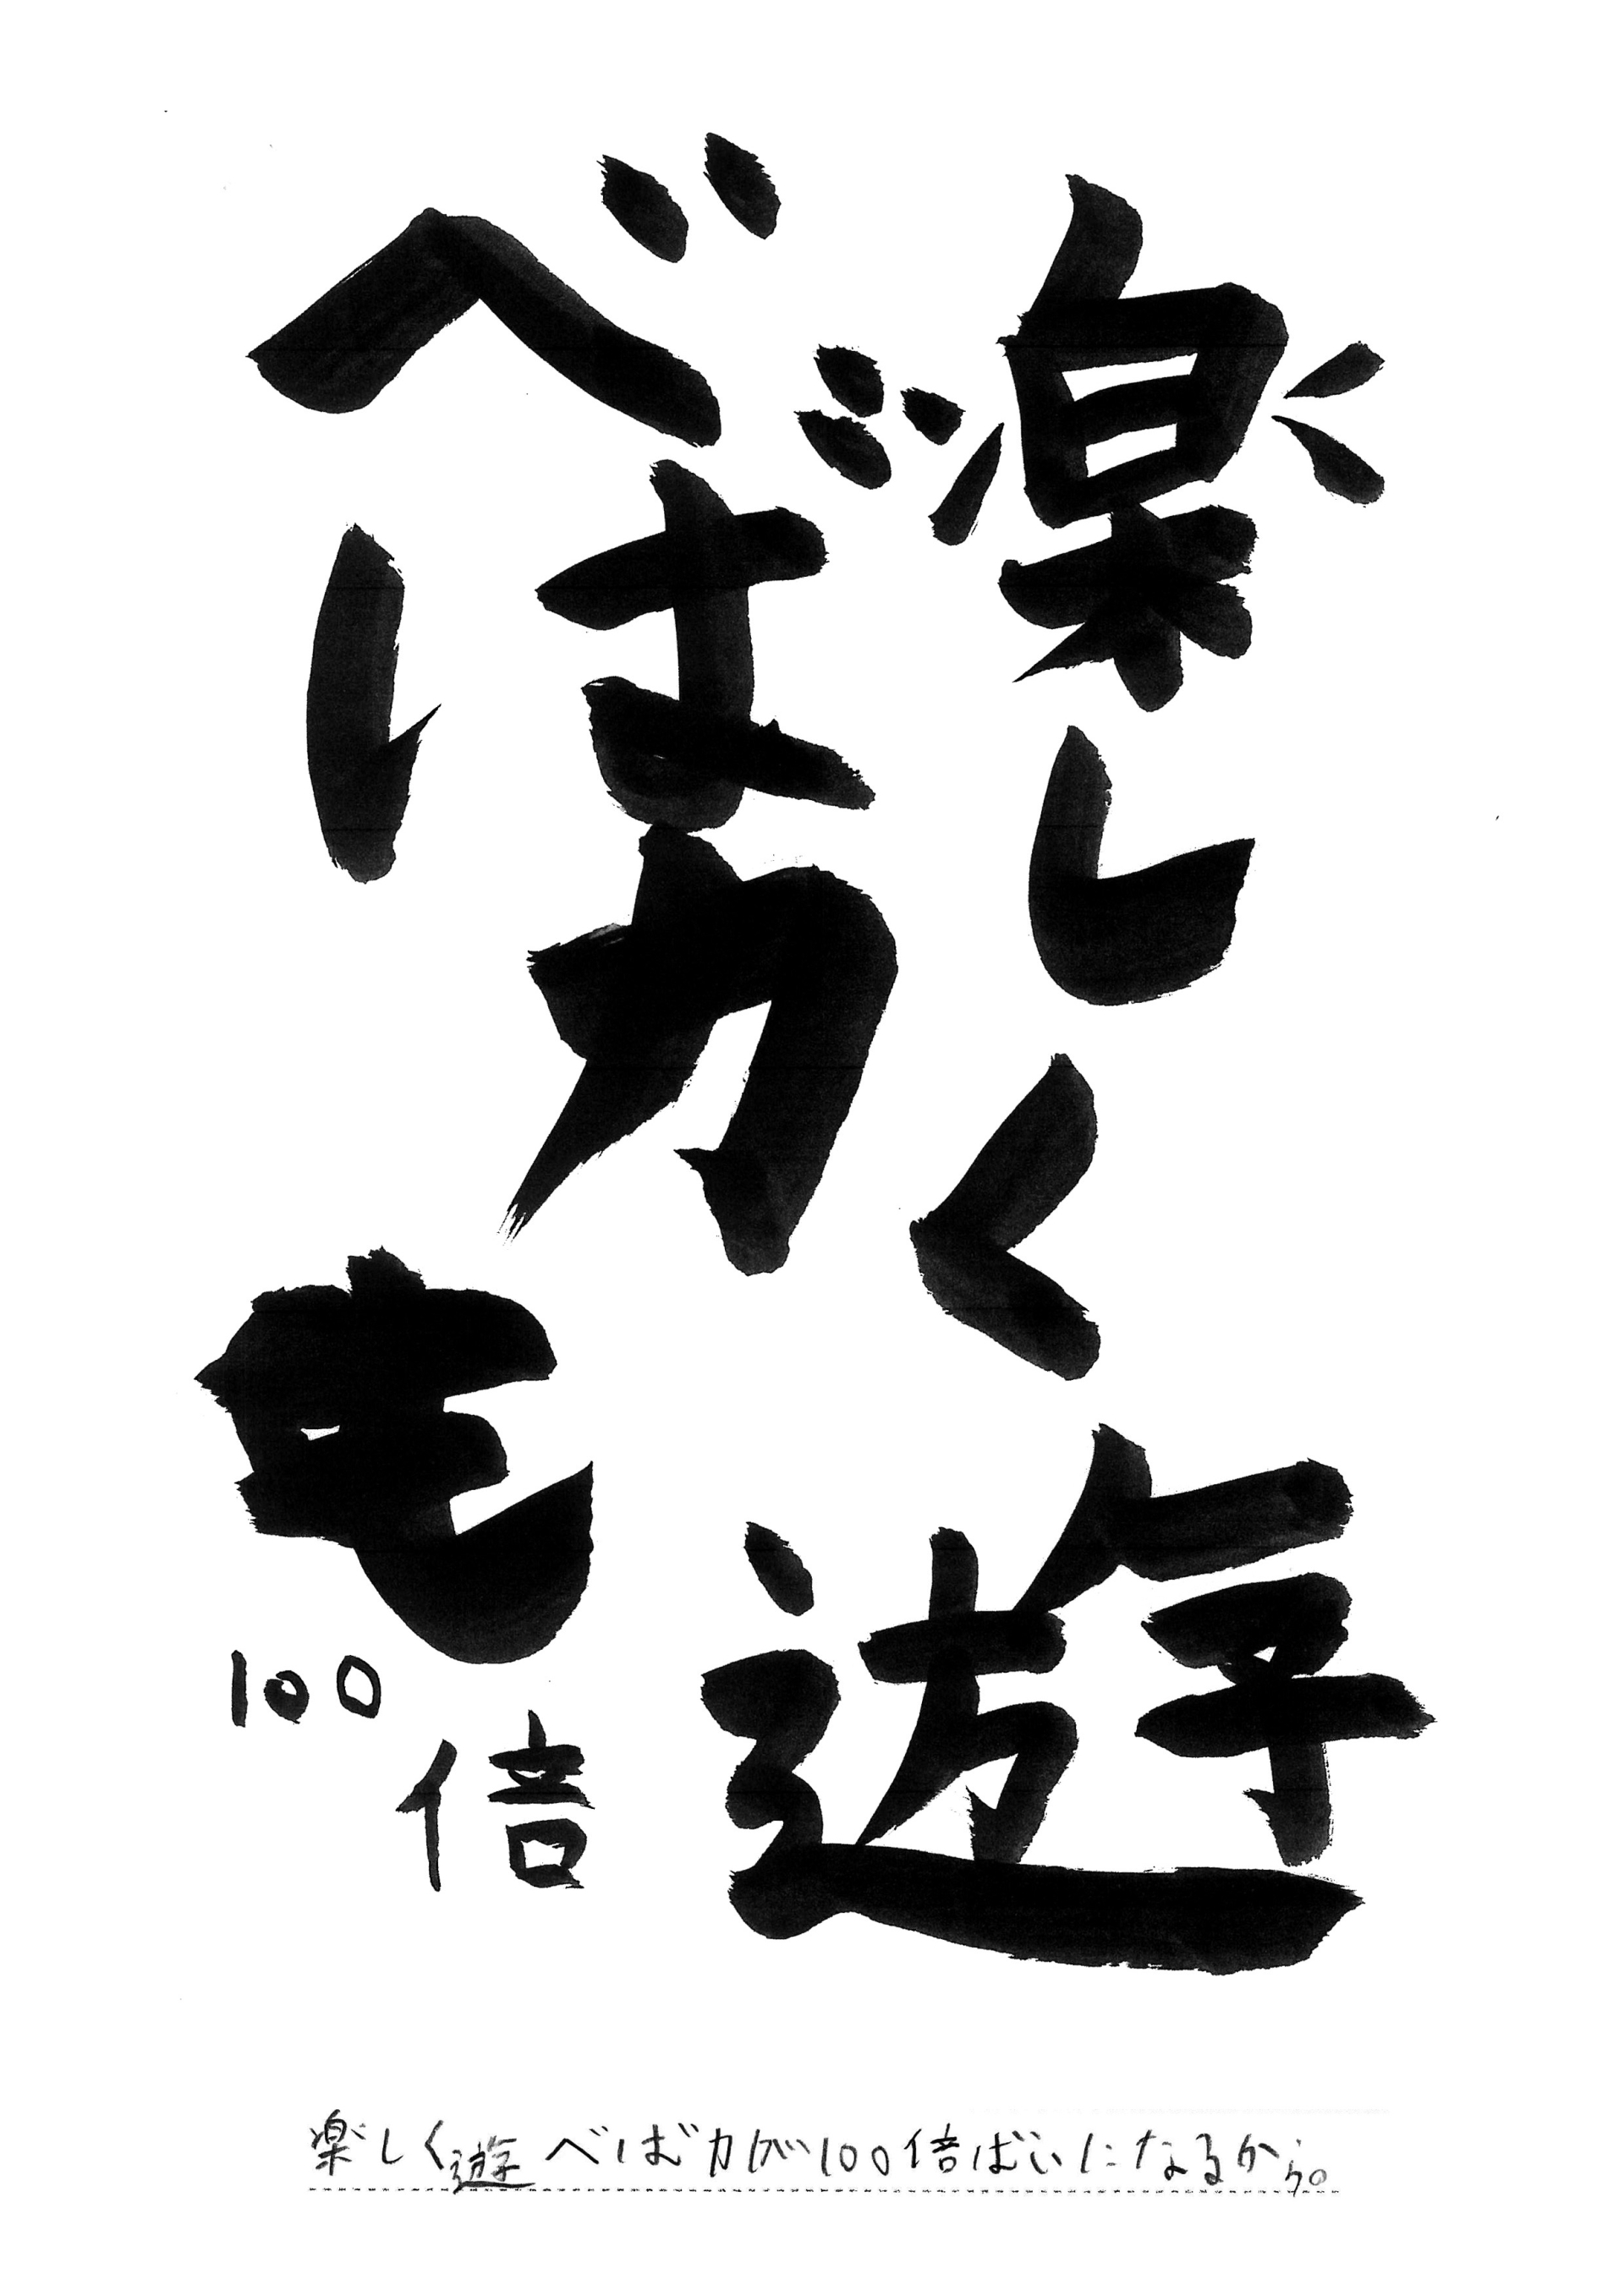 楽しく遊
べば力も
100倍
楽しく遊べば力が100倍ばいになるから。